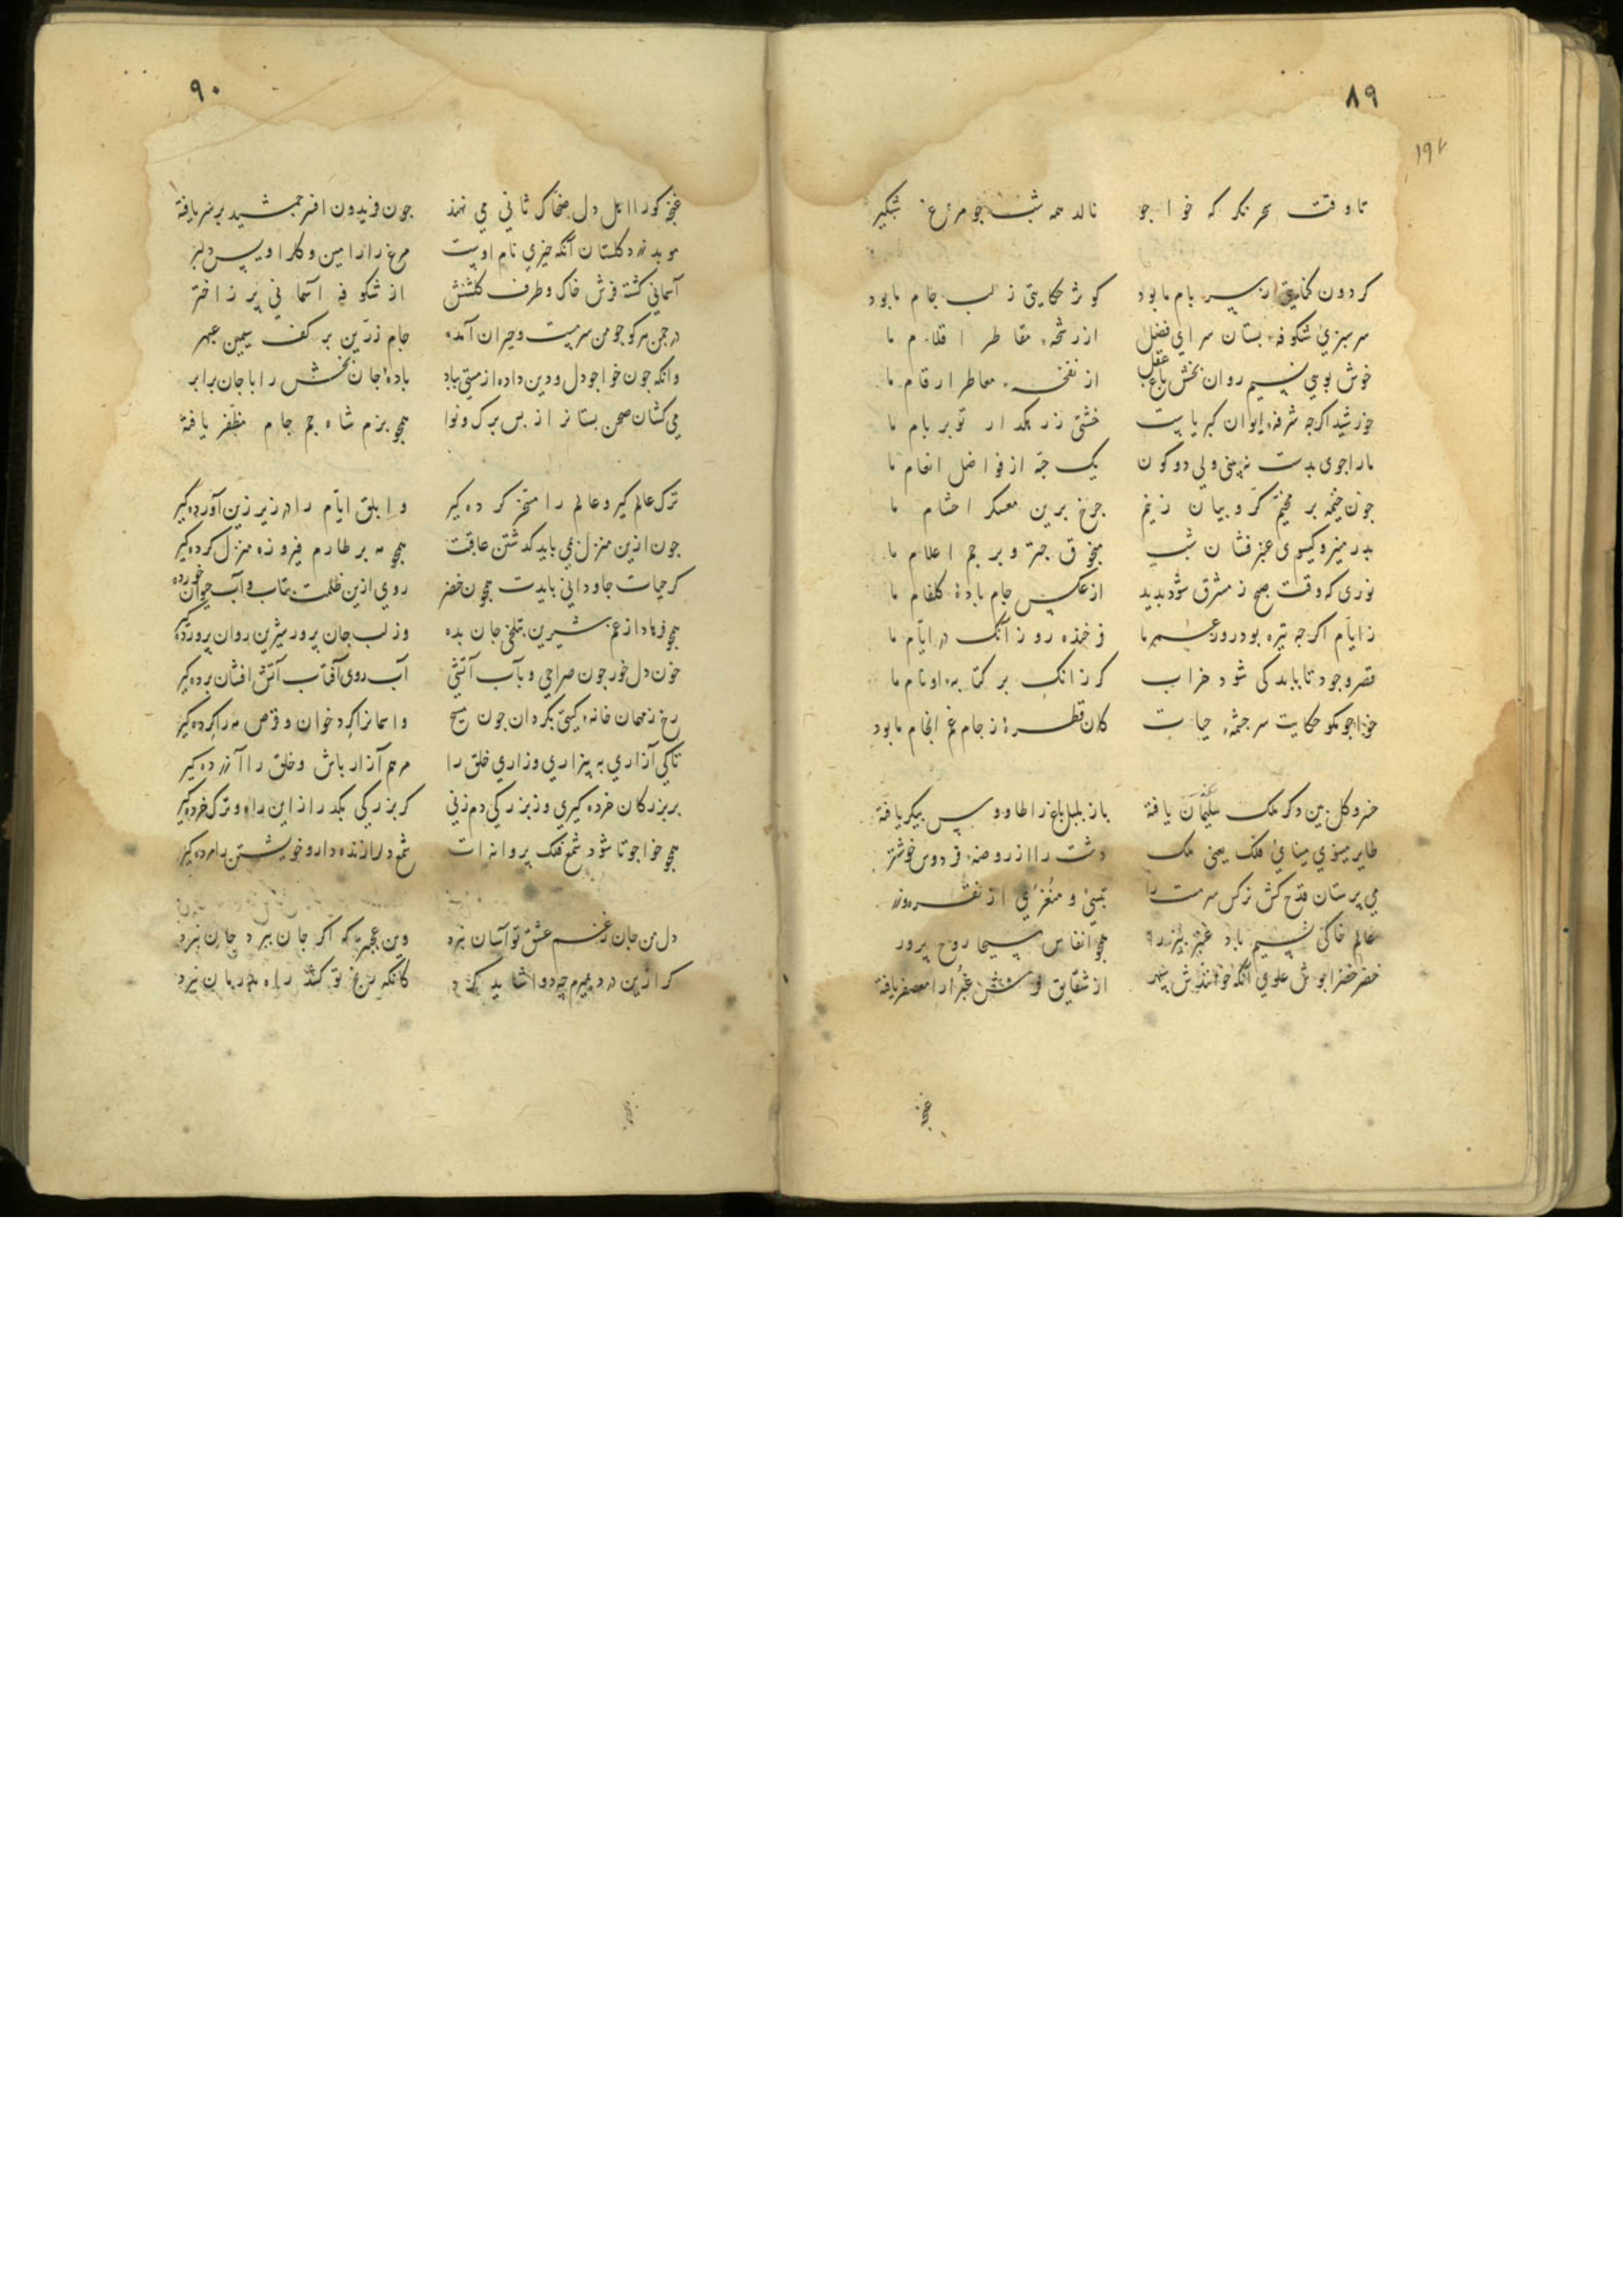 ۸۹
۱۹۲
تا وقت سحر نکر که خواجو نالد همه شب جو مرغ شبکیر
کردون کنایتی ز سر بام ما بود کوثر حکایتی ز لب جام ما بود
سرسبزی شکوفه بستان سرای فضل از رشحه مقاطر اقلام ما
خوش بویی نسیم روان بخش باغ عقل از نفخه معاطر ارقام ما
خورشید اکرجه شرفه ایوان کبریاست خشتی ز رهکدار تو بر بام ما
ما را جوی بدست نبینی ولی دو کون یک حبّه از فواضل انعام ما
جون خیمه بر مخیم کرّوبیان زنیم جرخ برین معسکر احشام ما
بدر منیر و کیسوی عنبر فشان شب منجوق جتر و برجم اعلام ما
نوری که وقت صبح ز مشرق شود بدید از عکس جام بادهٔ کلفام ما
ز ایام اکر جه تیره بود روز عمر ما فرخنده روز آنک در ایام ما
قصر وجود تا بابد کی شود خراب کر زانک بر کتابه او نام ما
خواجو مکو حکایت سرجشمه حیات کان قطرهٔ ز جام غم انجام ما بود
خسرو کل بین دکر ملک سلیمان یافته باز بلبل باغ را طاووس پیکر یافته
طایر مینوی مینایی فلک یعنی ملک دشت را از روضه فردوس خوشتر
می پرستان قدح کش نرکس سرمست را
عالم خاکی نسیم باد عنبر بیز را همجو انفاس مسیحا روح پرور
خضر خضرا پوش علوی آنکه خوانندش سپهر از شقایق فرش غبرا را معصفر یافته
غنجه
۹۰
غنجه کو را اهل دل ضحاک ثانی می نهند جون فریدون افسر جمشید بر سر یافته
موبد زرد کلستان آنکه خیری نام اوست مرغ را رامین و کل را ویس دلبر
آسمانی کشته فرش خاک و طرف کلشنش از شکوفه آسمانی پر ز اختر
در جمن هر کو جو من سرمست و حیران آمده جام زرّین بر کف سیمین عبهر
وانکه جون خواجو دل و دین داده از مستی بباد بادهٔ جان بخش را با جان برابر
می کشان صحن بستان را ز بس برک و نوا همجو بزم شاه جم جام مظفّر یافته
ترک عالم کیر و عالم را مسخّر کرده کیر و ابلق ایّام را در زیر زین آورده کیر
جون ازین منزل همی باید کدشتن عاقبت همجو مه بر طارم فیروزه منزل کرده کیر
کر حیات جاودانی بایدت همجون خضر روی ازین ظلمت بتاب و آب حیوان خورده
همجو فرهاد از غم شیرین بتلخی جان بده وز لب جان پرور شیرین روان پرورده
خون دل خور جون صراحی و بآب آتشی آب روی آفتاب آتش افشان برده کیر
رخ ز مهمان خانه کیتی بکردان جون مسیح و آسمانرا کرد خوان و قرص مه را کرده کیر
تا کی آزاری به بیزاری و زاری خلق را مرهم آزار باش و خلق را آزرده کیر
بر بزرکان خرده کیری وز بزرکی دم زنی کر بزرکی بکدر از این راه و ترک خرده کیر
همجو خواجو تا شود شمع فلک پروانه ات شمع دل را زنده دار و خویشتن را مرده کیر
دل من جان ز غم عشق تو آسان نبرد وین عجبتر که اکر جان ببرد جان نبرد
کر ازین درد بمیرم چه دوا شاید کرد کانکه رنج تو کشد راه بدرمان نبرد